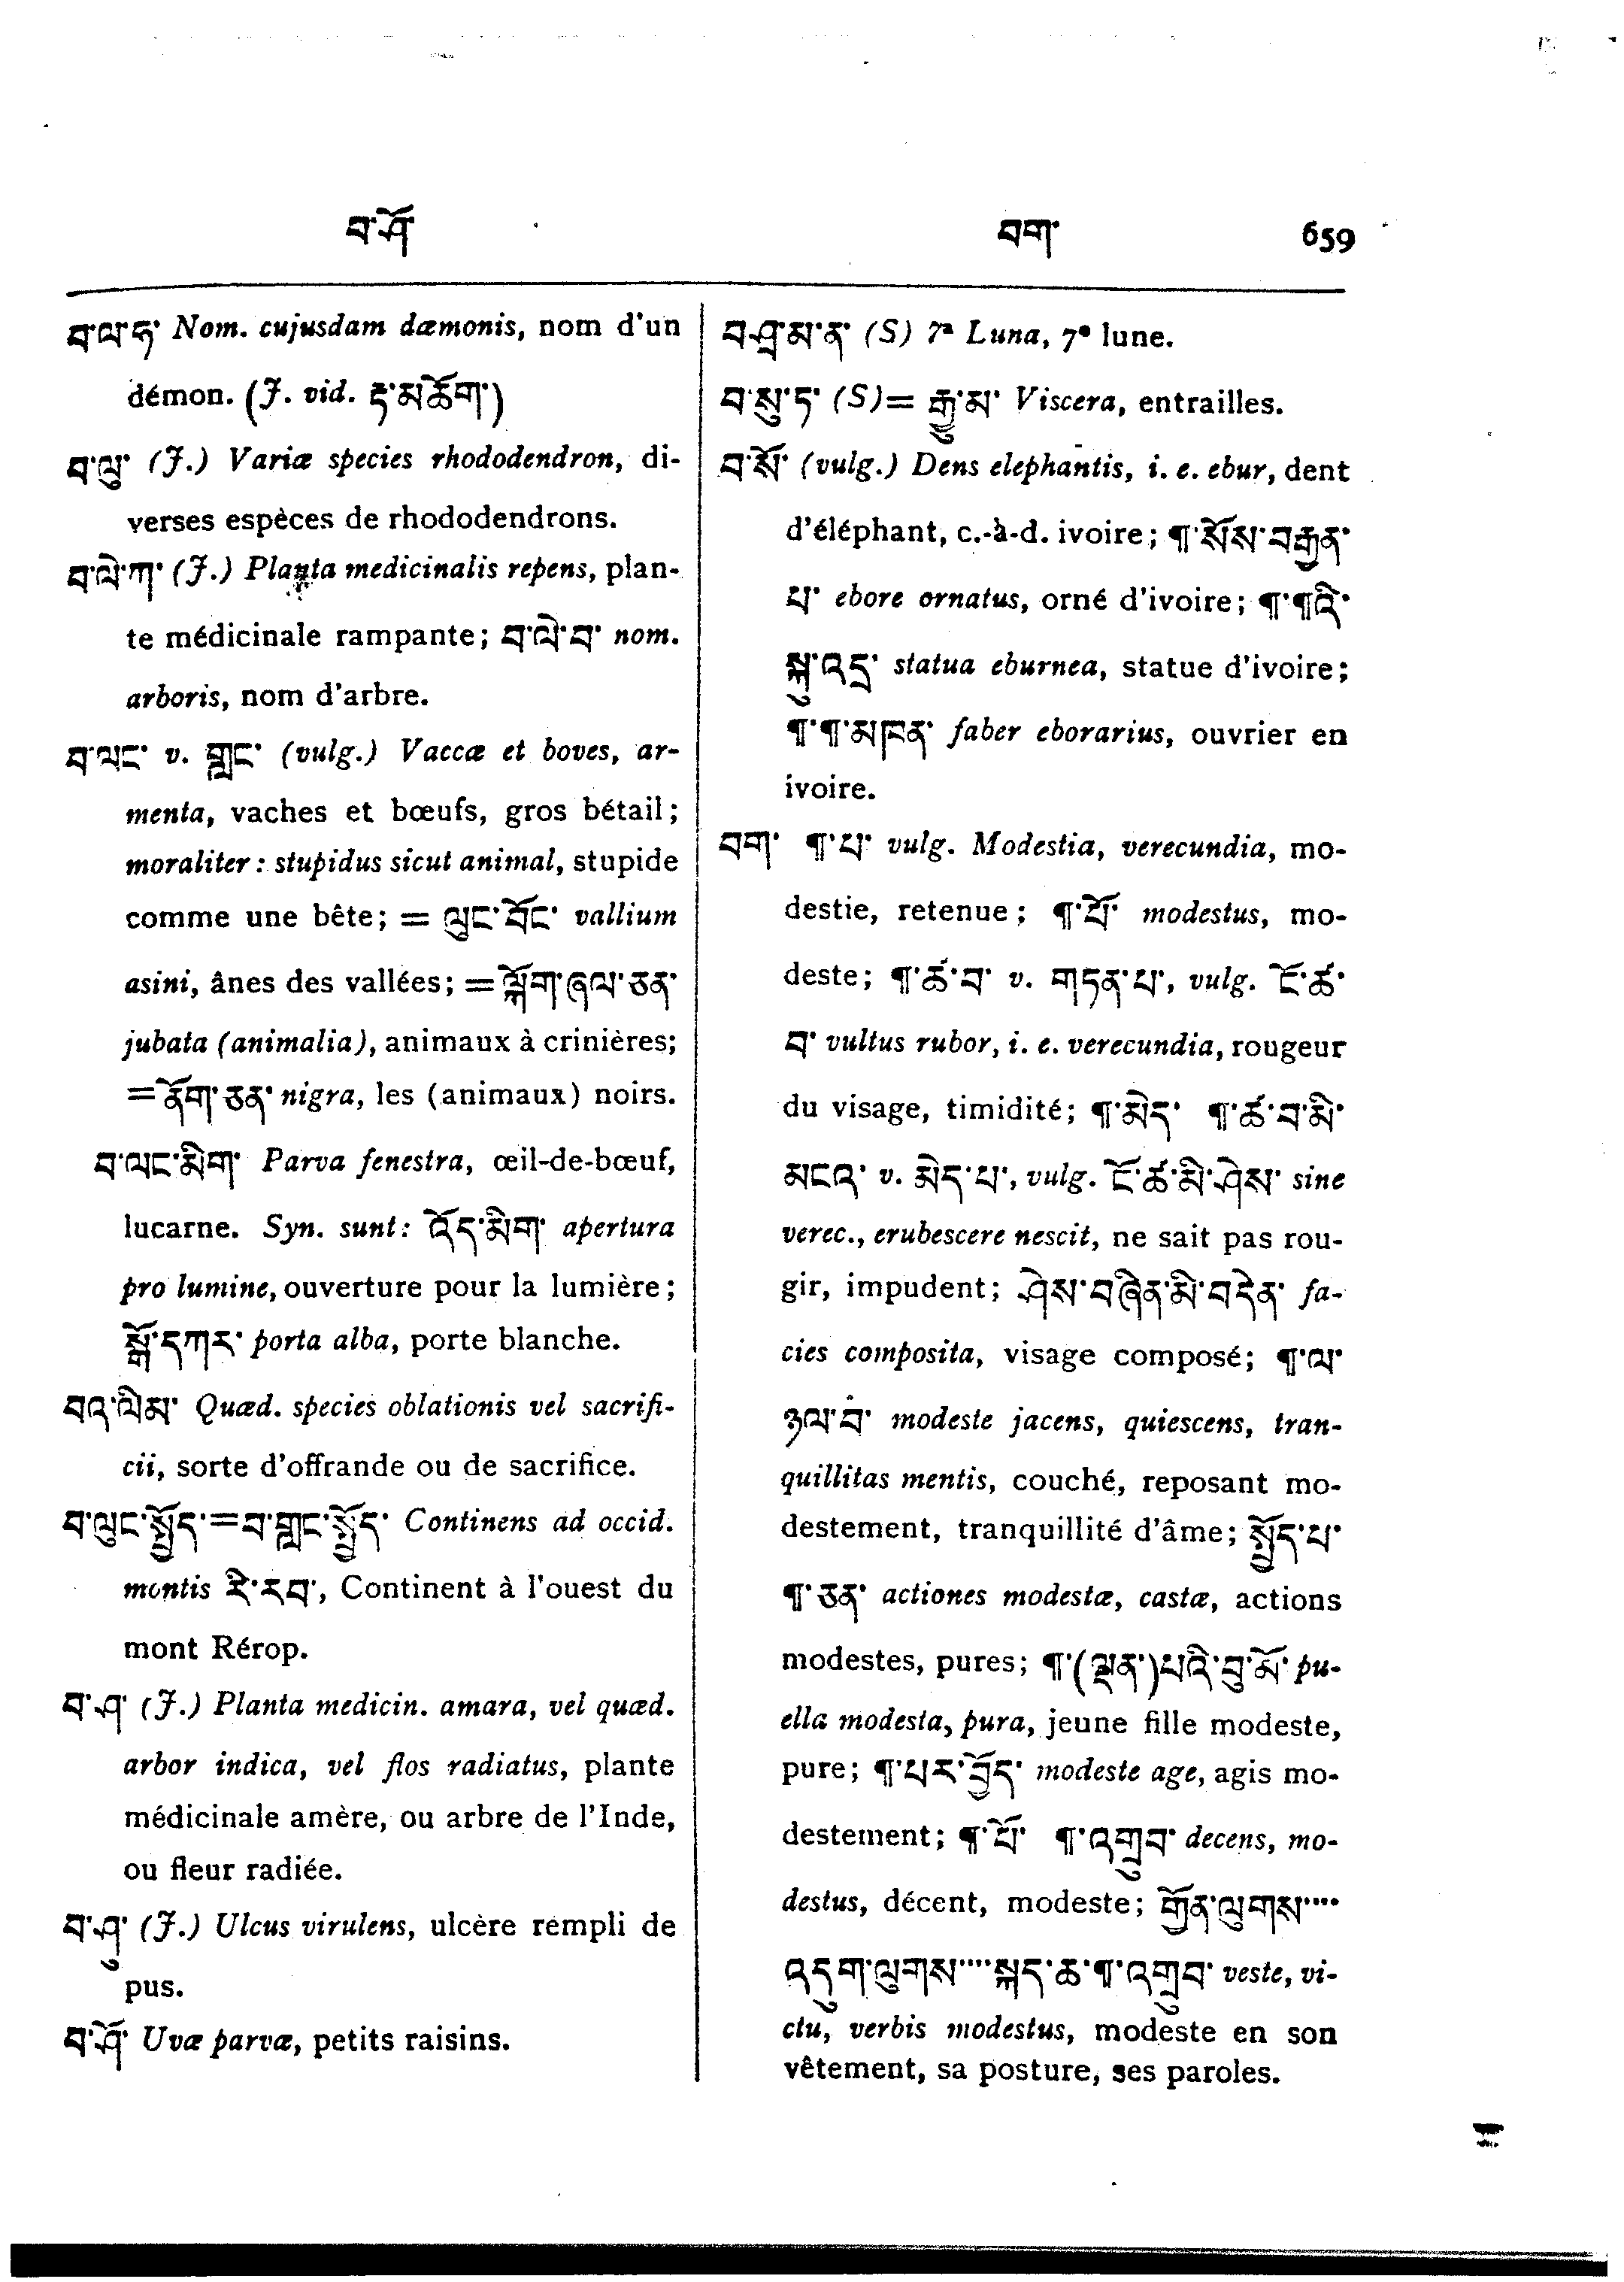 བ་ཤོ་
བག་
659
བ་ལ་ཧ་ Nom. cujusdam dæmonis, nom d'un
démon. (J. vid. རྟ་མཆོག་)
བ་ལུ་ (J.) Variæ species rhododendron, di-
verses espèces de rhododendrons.
བ་ལེ་ཀ་ (J.) Planta medicinalis repens, plan-
te médicinale rampante; བ་ལེ་བ་ nom.
arboris, nom d'arbre.
བ་ལང་ v. གླང་ (vulg.) Vaccæ et boves, ar-
menta, vaches et bœufs, gros bétail;
moraliter: stupidus sicut animal, stupide
comme une bête; = ལུང་བོང་ vallium
asini, ânes des vallées; = ལྐོག་ཞལ་ཅན་
jubata (animalia), animaux à crinières;
= ནོག་ཅན་ nigra, les (animaux) noirs.
བ་ལང་མིག་ Parva fenestra, œil-de-bœuf,
lucarne. Syn. sunt: འོད་མིག་ apertura
pro lumine, ouverture pour la lumière;
སྒོ་དཀར་ porta alba, porte blanche.
བའ་ལིམ་ Quæd. species oblationis vel sacrifi-
cii, sorte d'offrande ou de sacrifice.
བ་ལུང་སྤྱོད་=བ་གླང་སྤྱོད་ Continens ad occid.
montis རི་རབ་, Continent à l'ouest du
mont Rérop.
བ་ཤ་ (J.) Planta medicin. amara, vel quæd.
arbor indica, vel flos radiatus, plante
médicinale amère, ou arbre de l'Inde,
ou fleur radiée.
བ་ཤུ་ (J.) Ulcus virulens, ulcère rempli de
pus.
བ་ཤོ་ Uvæ parvæ, petits raisins.
བ་ཤྲ་མ་ན་ (S) 7ª Luna, 7e lune.
བ་སུ་ཏ་ (S)= རྒྱུ་མ་ Viscera, entrailles.
བ་སོ་ (vulg.) Dens elephantis, i. e. ebur, dent
d'éléphant, c.-à-d. ivoire; ¶་སོས་བརྒྱན་
པ་ ebore ornatus, orné d'ivoire; ¶་¶འི་
སྐུ་འདྲ་ statua eburnea, statue d'ivoire;
¶་¶་མཁན་ faber eborarius, ouvrier en
ivoire.
བག་ ¶་པ་ vulg. Modestia, verecundia, mo-
destie, retenue; ¶་པོ་ modestus, mo-
deste; ¶་ཚ་བ་ v. གདན་པ་, vulg. ངོ་ཚ་
བ་ vultus rubor, i. e. verecundia, rougeur
du visage, timidité; ¶་མེད་ ¶་ཚ་བ་མི་
མངའ་ v. མེད་པ་, vulg. ངོ་ཚ་མི་ཤེས་ sine
verec., erubescere nescit, ne sait pas rou-
gir, impudent; ཤེས་བཞིན་མི་བདེན་ fa-
cies composita, visage composé; ¶་ལ་
ཉལ་བ་ modeste jacens, quiescens, tran-
quillitas mentis, couché, reposant mo-
destement, tranquillité d'âme; སྤྱོད་པ་
¶་ཅན་ actiones modestæ, castæ, actions
modestes, pures; ¶་(ལྡན་)པའི་བུ་མོ་ pu-
ella modesta, pura, jeune fille modeste,
pure; ¶་པར་བྱོད་ modeste age, agis mo-
destement; ¶་པོ་ ¶་འགྲུབ་ decens, mo-
destus, décent, modeste; གྱོན་ལུགས་····
འདུག་ལུགས་····སྐད་ཆ་¶་འགྲུབ་ veste, vi-
ctu, verbis modestus, modeste en son
vêtement, sa posture, ses paroles.